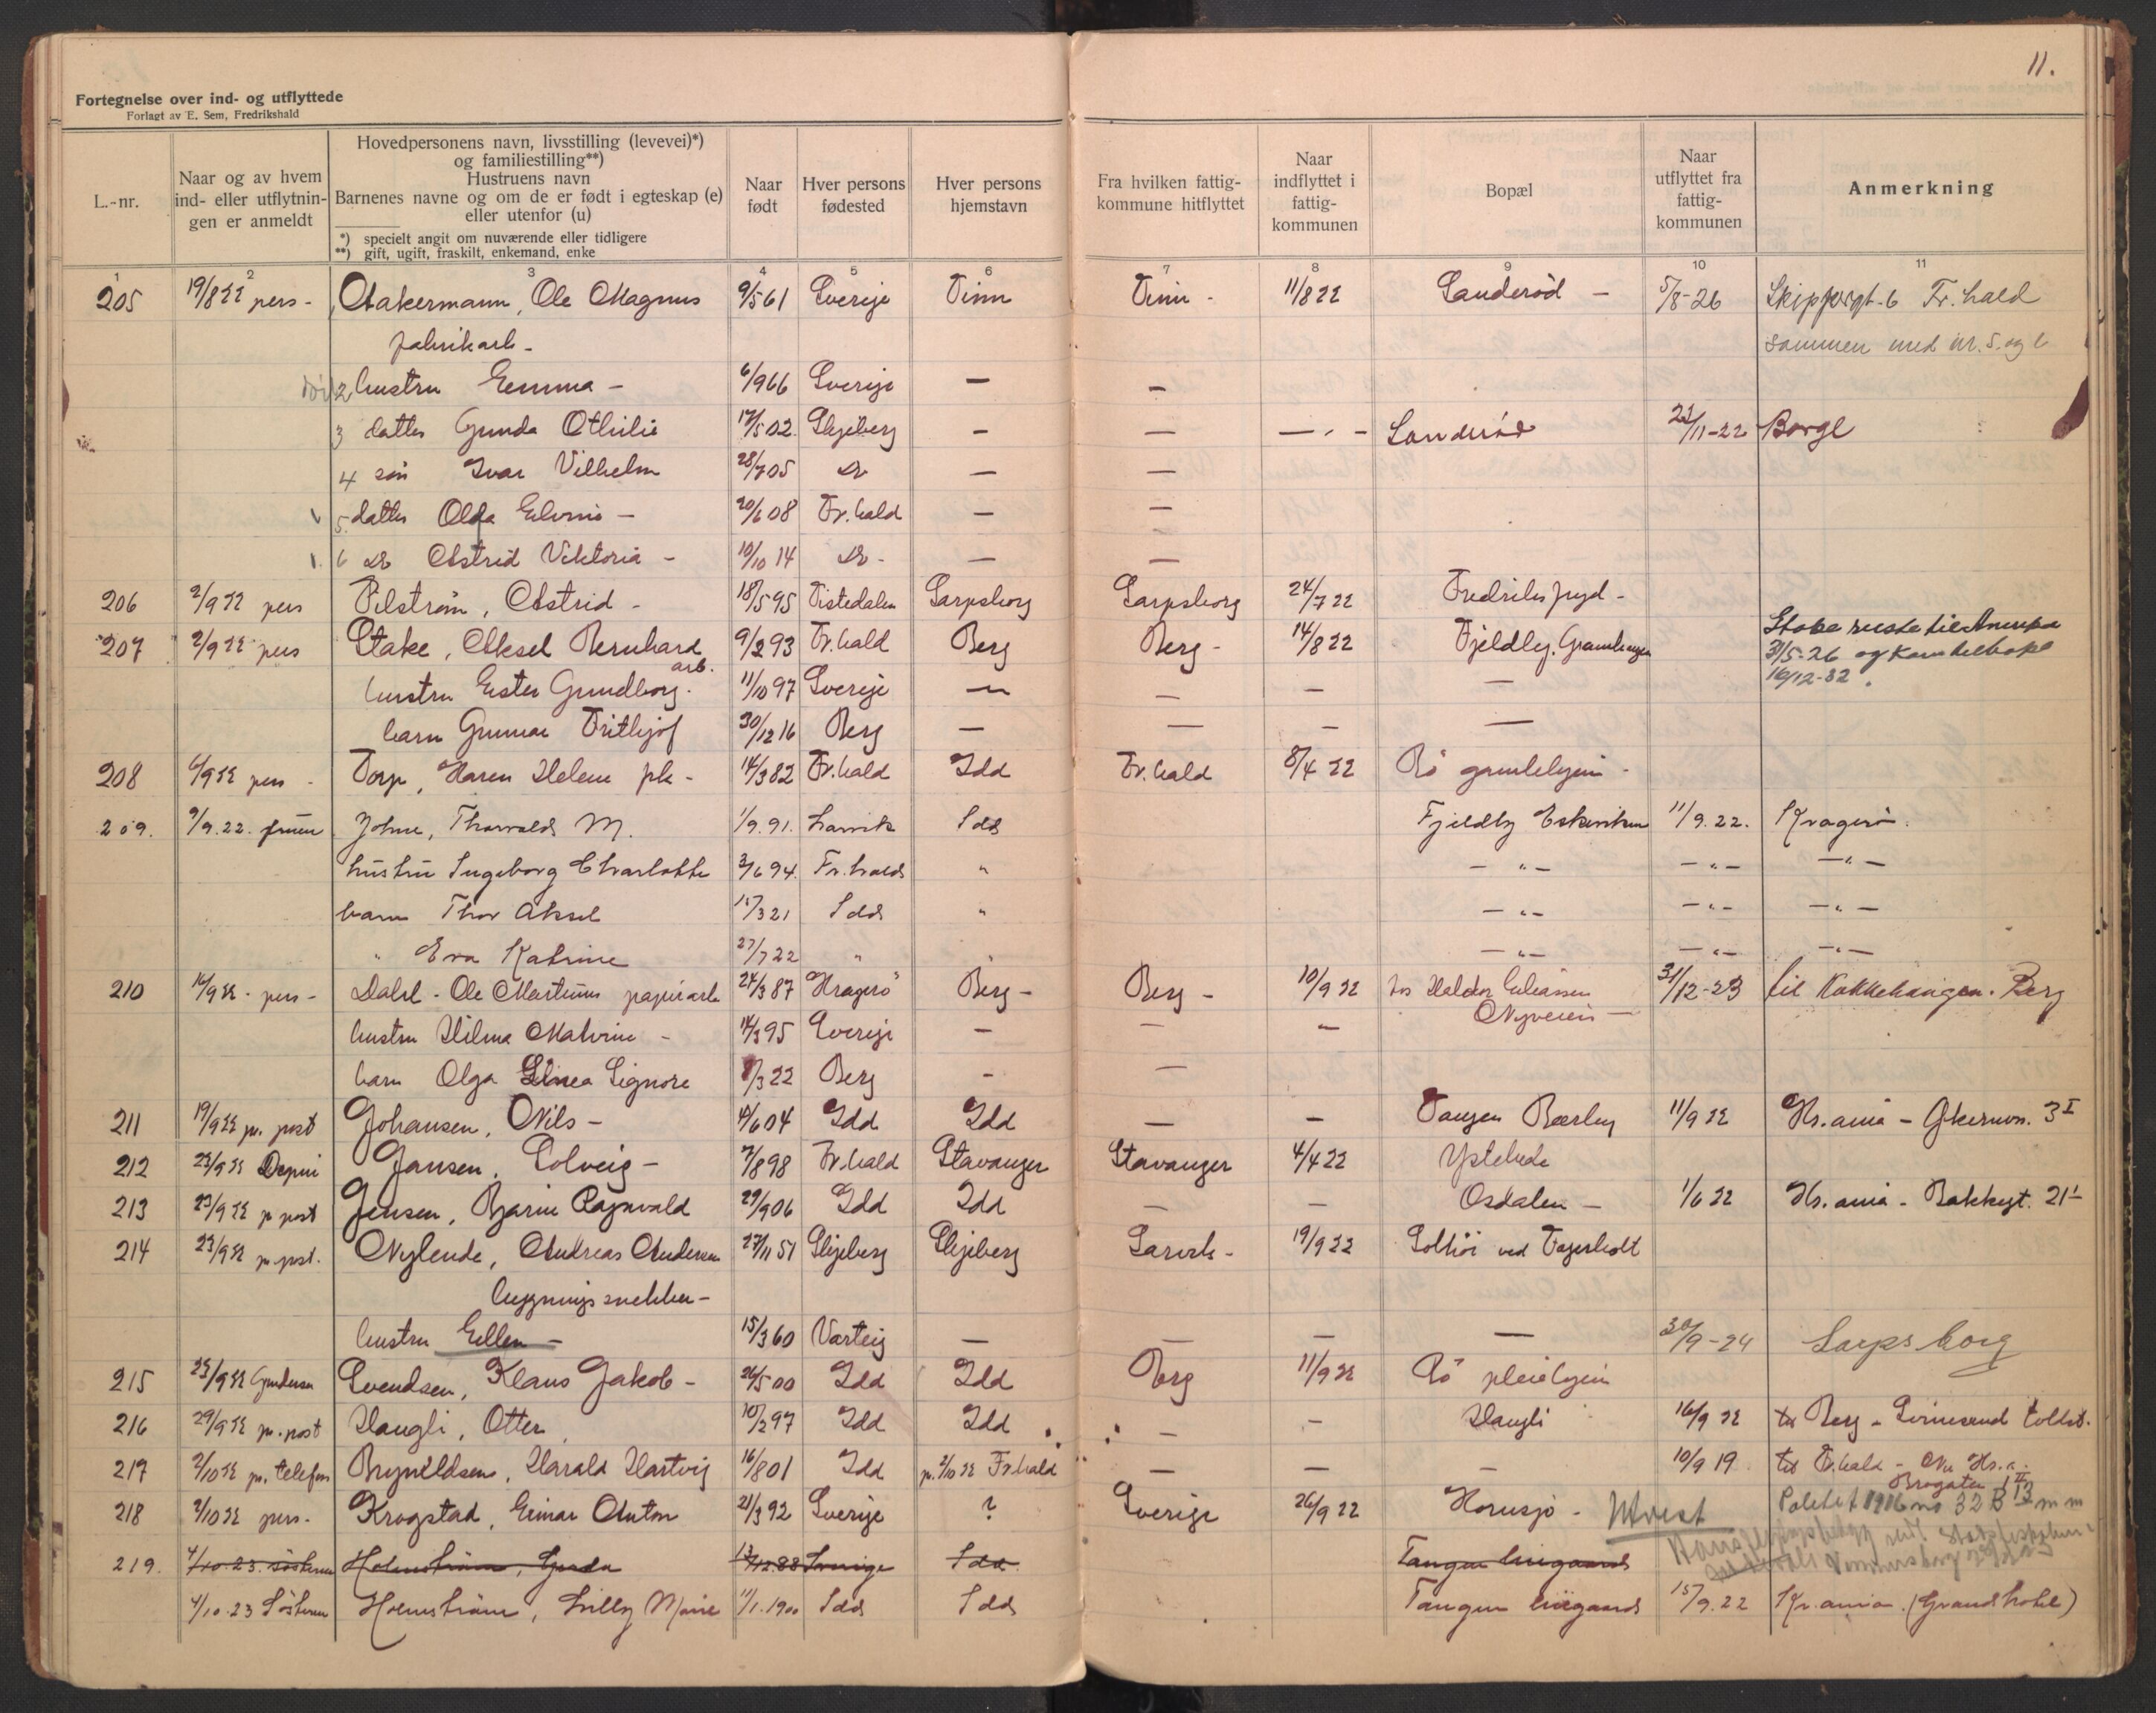 11.
Fortegnelse over ind- og utflyttede
Forlagt av E. Sem, Fredrikshald
L.-nr.
Naar og av hvem ind- eller utflytnin- gen er anmeldt
Hovedpersonens navn, livsstilling (levevei)*) og familiestilling**)
Hustruens navn
Barnenes navne og om de er født i egteskap (e) eller utenfor (u)
*) specielt angit om nuværende eller tidligere
**) gift, ugift, fraskilt, enkemand, enke
Naar født
Hver persons fødested
Hver persons hjemstavn
Fra hvilken fattig- kommune hitflyttet
Naar indflyttet i fattig- kommunen
Bopæl
Naar utflyttet fra fattig- kommunen
Anmerkning
1 2 3 4 5 6 7 8 9 10 11
205 19/8 22 pers - Aakermann, Ole Magnus 9/5 61 Sverije Tinn - 11/8 22 Sanderød - 5/8-26 Skippergt. 6 Fr. hald
fabrikarb - sammen med nr. 5. og 6
2 hustru Emma - 6/9 66 Sverije — —
3 datter Gunda Othilie 17/5 02 Skjeberg — — — " — Sanderød 22/11-22 Borge
4 søn Ivar Vilhelm 28/7 05 Do — —
5 datter Olga - 20/6 08 Fr. hald — —
6 Do Astrid Viktoria - 10/10 14 Do - — —
206 2/9 22 pers Pilstrøm, Astrid - 18/5 95 Tistedalen Sarpsborg Sarpsborg 24/7 22 Fredriksfryd -
207 2/9 22 pers Stake, Aksel Bernhard arb. 9/2 93 Fr. hald Berg Berg - 14/8 22 Fjeldby. Stake reiste til Amerika
31/5-26 og kom tilbake
16/12-32.
hustru Ester Gundborg. 11/10 97 Sverije — — — —
barn Gunnar Fritjof 30/12 16 Berg — — — —
208 6/9 22 pers - Torp, Karen Helene 14/3 82 Fr. hald Idd Fr. hald 8/4 22 Rø gamlehjem -
209. 9/9. 22. fruen Johne, Thorvald M. 1/9. 91. Larvik Idd Fjeldby Eskeviken 11/9. 22. Kragerø.
hustru Ingeborg Charlotte 3/6 94. Fr. hald " — " — — " — — " —
barn Thor Aksel 3 21 Idd " — " — — " — — " —
" Eva Katrine 27/7 22 " " — " — — " — — " —
210 16/9 22 - pers - Dahl - Ole Martinus papirarb 24/3 87 Kragerø Berg - Berg - 10/9 22 hos Halvdor Eliassen 31/12-23 til Kokkehaugen. Berg
Nyveien —
hustru Hilma Malvine - 14/3 95 Sverije — — —
barn Olga Linea Signore 8/3 22 Berg - —
211 19/9 22 pr. post Johansen, Nils - 4/6 04 Idd Idd — — Tangen Bærby 11/9 22 Kr.ania - Akersvn. 3 I
212 23/9 22 Jansen, Solveig - 7/8 98 Fr. hald Stavanger Stavanger 4/4 22 Ystehede
213 23/9 22 pr post Jensen, Bjarne Ragnvald 29/9 06 Idd Idd — — Osdalen - 1/6 22 Kr.ania - Bakkegt. 21 I
214 23/9 22 pr. post. Nylende, Andreas Andersen 27/11 51 Skjeberg Skjeberg 19/9 22 Solhøi ved Fagerholt
bygningssnekker -
hustru Ellen - 15/3 60 Varteig — — — — 30/9-24 Sarpsborg
215 23/9 22 Gundersen Svendsen, Klaus Jakob - 26/5 00 Idd Idd Berg 11/9 22 Rø pleiehjem
216 29/9 22 pr. post Haugli, Otter 10/2 97 Idd Idd — - Haugli 16/9 22 til Berg - Svinesund toldst.
217 2/10 22 pr. telefon Brynildsen, Harald Hartvig 16/8 01 Idd p. 2/10 22 Fr. hald — — — 10/9 19 til Fr. hald - Nu Kr.a.
Brogaten 13 II
218 2/10 22 pers. Krogstad, Einar Anton 21/3 92 Sverije ? Sverige 26/9 22 Kornsjø - Utvist
219. 4/10. 23. søsteren Holmstrøm, Gerda 13/12. 88 Sverige Idd Tangen lillegaard
4/10. 23 Søsteren Holmstrøm, Lilly Marie 11/1. 1900 Idd Idd Tangen lillegaard 15/9. 22 Kr.ania. (Grand hotel)